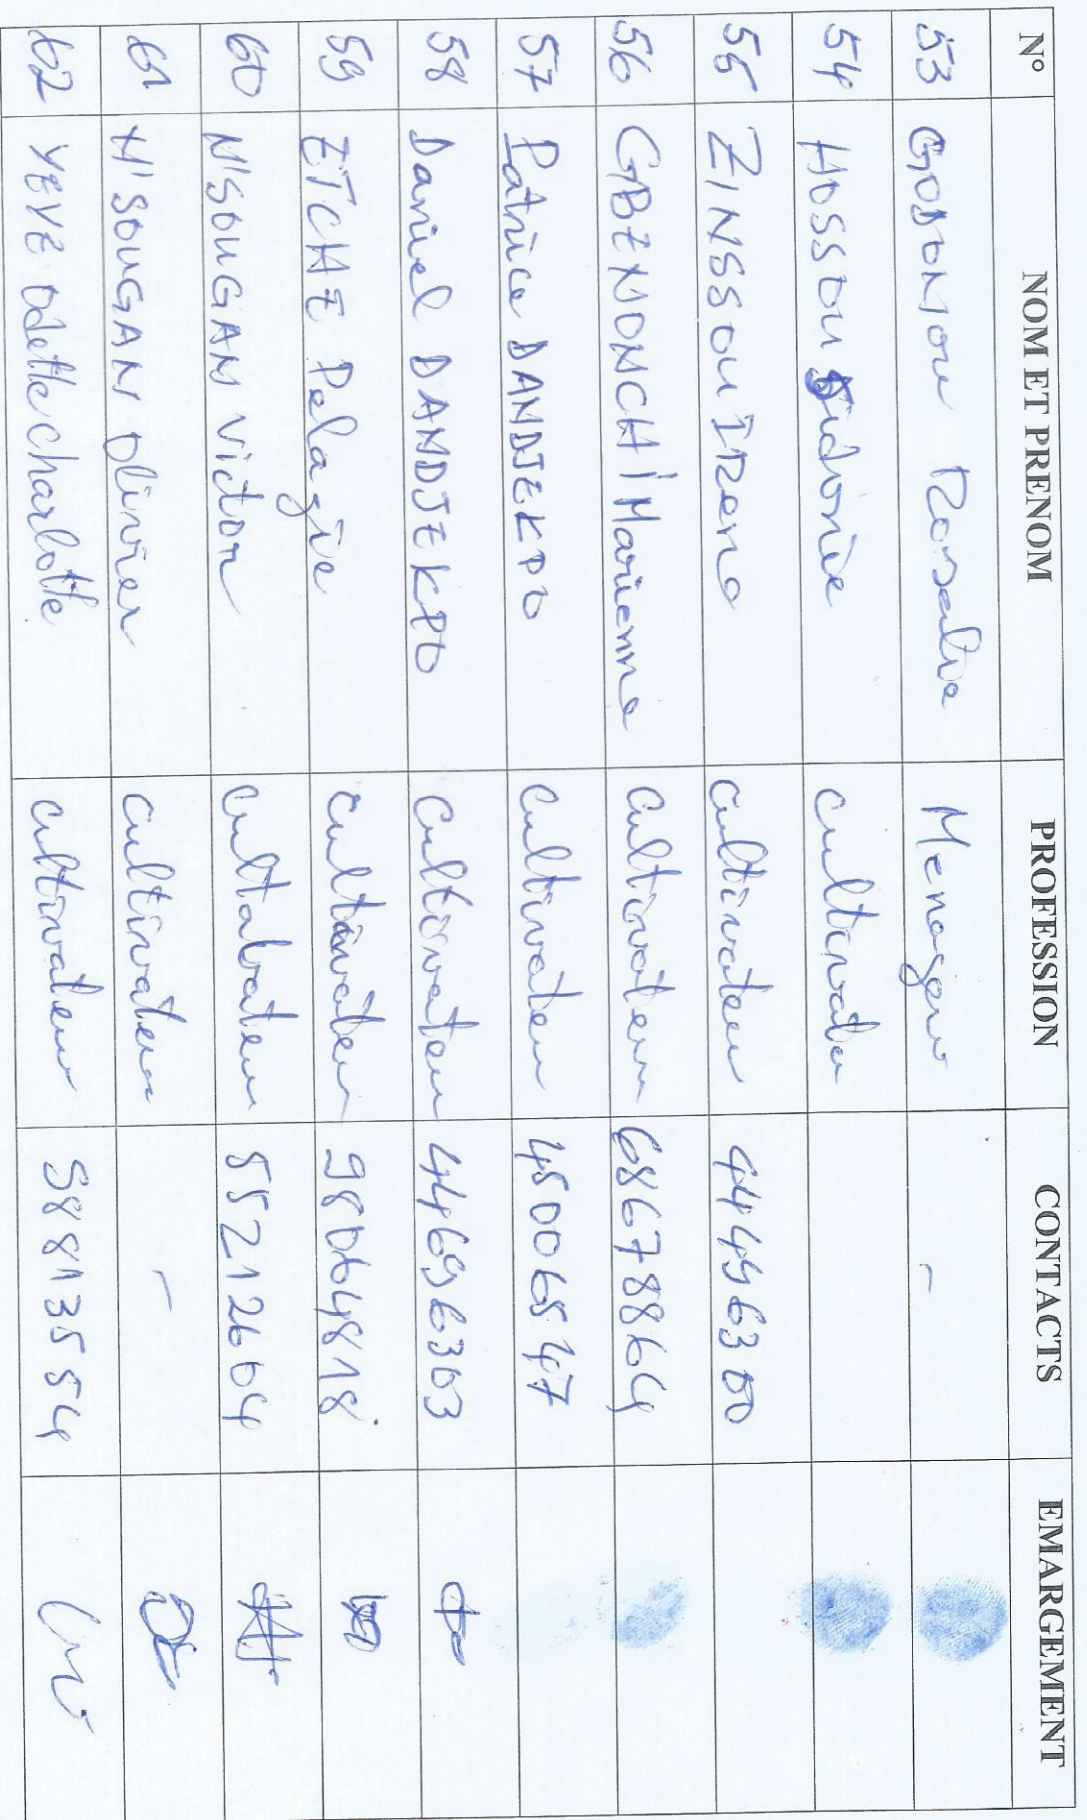 N° NOM ET PRENOM PROFESSION CONTACTS EMARGEMENT
53 GODONOU Rosalie Menager -
54 HOSSOU Sidonie cultivateur
55 ZINSSOU Irene cultivateur 44496300
56 GBENONCHI Marienne cultivateur 68678864
57 Patrice DANDJEKPO cultivateur 45006547
58 Daniel DANDJEKPO cultivateur 44696303
59 ETCHE Pelagie cultivateur 98064818
60 N'SOUGAN Victor cultabateur 55212604
61 N'SOUGAN Olivier cultivateur -
62 YEVE Odette Charlotte cultivateur 58813554